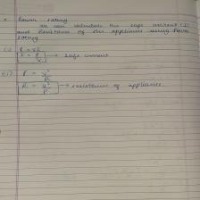 * Power rating
We can calculate the safe current (I)
and resistance of the appliance using power
rating
(i) P = VI
I = P/V → safe current
(ii) P = V²/R
R = V²/P → resistance of appliance.